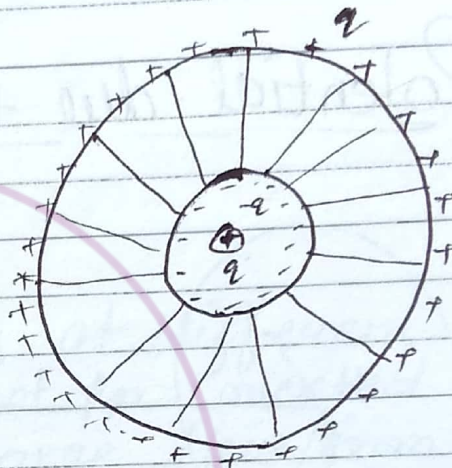 q
-q
q